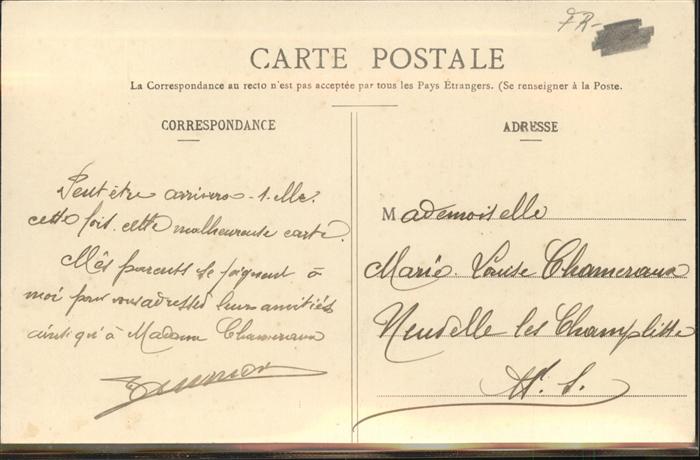 FR-
CARTE POSTALE
La Correspondance au recto n'est pas acceptée par tous les Pays Étrangers. (Se renseigner à la Poste.
CORRESPONDANCE
Peut être arrivera-t-elle
cette fois cette malheureuse carte.
Mes parents se joignent à
moi pour vous adresser leurs amitiés
ainsi qu'à Madame Chameraux
ADRESSE
Mademoiselle
Marie Louise Chameraux
Neuvelle les Champlitte
Hte S.